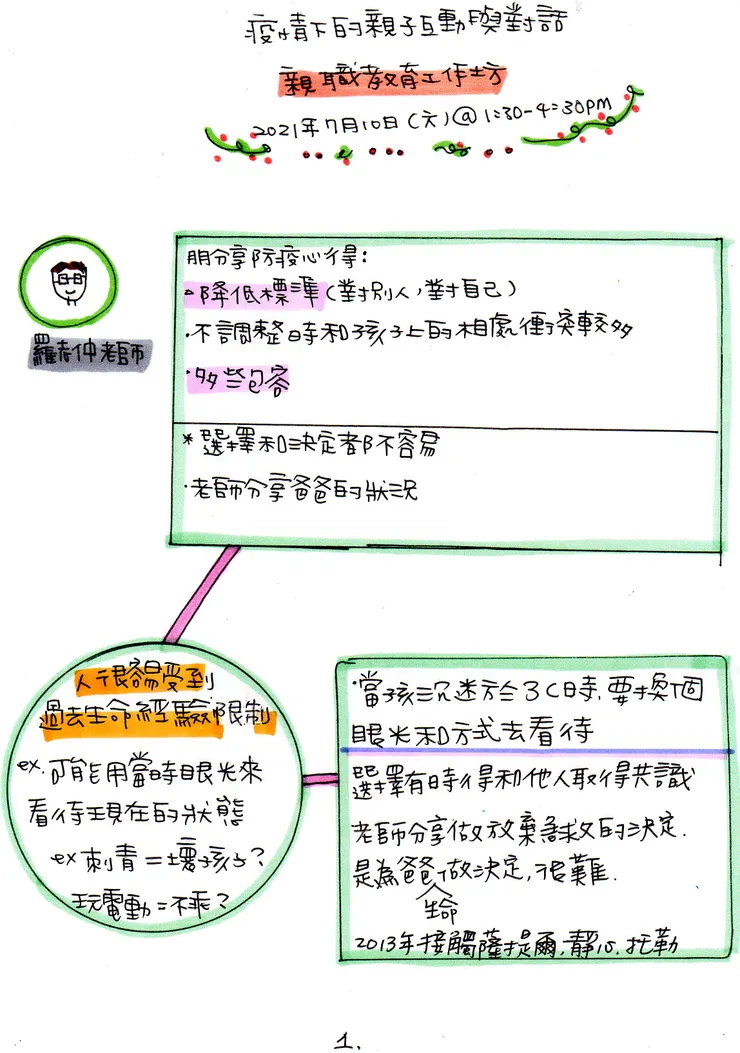 疫情下的親子互動與對話
親職教育工作坊
2021年7月10日(六)@1:30-4:30pm
羅志仲老師
朋分享防疫心得:
·降低標準(對別人,對自己)
·不調整時和孩子上的相處衝突較多
·多些包容
*選擇和決定都不容易
·老師分享爸爸的狀況
人很容易受到
過去生命經驗限制
ex.可能用當時眼光來
看待現在的狀態
ex刺青=壞孩子?
玩電動=不乖?
·當孩沉迷於3C時,要換個
眼光和方式去看待
選擇有時得和他人取得共識
老師分享做放棄急救的決定.
是為爸爸做決定,很難.
生命
2013年接觸薩提爾,靜心.托勒
1.